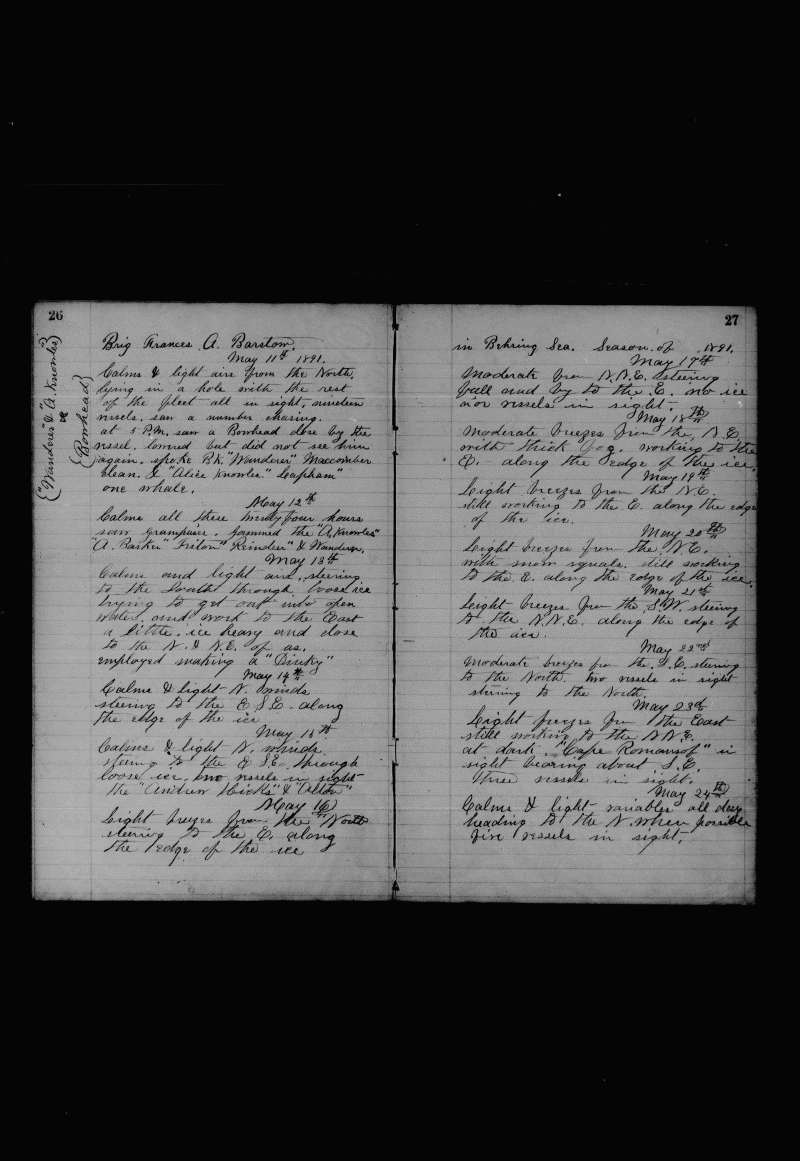 26
{"Wanderer" & "A. Knowles"}
&
{Bowhead}
Brig Frances A. Barstow
May 11th 1891.
Calms & light airs from the North.
lying in a hole with the rest
of the fleet all in sight, nineteen
vessels. saw a number chasing.
at 5 P.M. saw a Bowhead close by the
vessel. lowered but did not see him
again. spoke Bk. "Wanderer" Maccomber
clean. & "Alice Knowles" Leapham"
one whale.
May 12th
Calms all these twenty four hours
saw Grampuses. Gammed the "A. Knowles"
"A. Barker" "Triton" "Reindeer" & Wanderer.
May 13th
Calms and light airs, steering
to the South through loose ice
trying to get out into open
water. and work to the East
a little. ice heavy and close
to the N. & N.E. of us.
employed making a "Dinky"
May 14th
Calms & light N. winds
steering to the E.S.E. along
the edge of the ice
May 15th
Calms & light N. winds.
steering to the E.S.E. through
loose ice, two vessels in sight
the "Andrew Hicks" & "Alton"
May 16
Light breeze from the "North
steering to the E. along
the edge of the ice
27
in Behring Sea. Season of 1891.
May 17th
Moderate from N.N.E. steering
full and by to the E. no ice
nor vessels in sight.
May 18th
Moderate breezes from the N.E.
with thick fog. working to the
E. - along the edge of the ice.
May 19th
Light breezes from the N.E.
still working to the E. along the edge
of the ice.
May 20th
Light breezes from the N.E.
with snow squals. still working
to the E. along the edge of the ice.
May 21st
Leight breezes from the S.W. steering
to the N.N.E. along the edge of
the ice.
May 22nd
Moderate breezes from the S.E. steering
to the North. two vessels in sight
steering to the North.
May 23d
Light breezes from the East
still working to the N.N.E.
at dark. "Cape Romansof" in
sight bearing about S.E.
three vessels in sight.
May 24th
Calms & light variables all day
heading to the N. when possible
five vessels in sight.